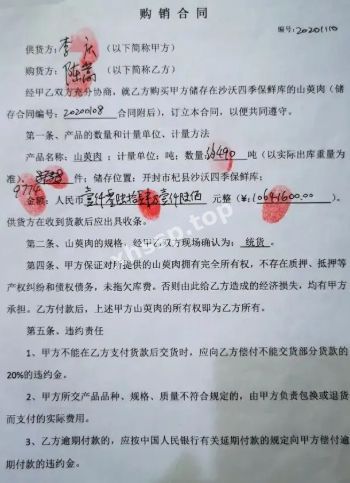 购销合同
编号:20201110
供货方:李庆(以下简称甲方)
购货方:陈嵩(以下简称乙方)
经甲乙双方充分协商,就乙方购买甲方储存在沙沃四季保鲜库的山萸肉(储
存合同编号:20200108 合同附后),订立本合同,以便共同遵守。
第一条、产品的数量和计量单位、计量方法
产品名称:山萸肉;计量单位:吨;数量:490 吨(以实际出库重量为
准),件;储存位置:开封市杞县沙沃四季保鲜库;
9774
金额:人民币 元整(¥:10641600.00)。
供货方在收到货款后应出具收条。
第二条、山萸肉的规格,经甲乙双方现场确认为:统货。
第四条、甲方保证对所提供的山萸肉拥有完全所有权,不存在质押、抵押等
产权纠纷和债权债务,未拖欠库费。否则由此给乙方造成的经济损失,均有甲方
承担。乙方付款后,上述甲方山萸肉的所有权即为乙方所有。
第五条、违约责任
1、甲方不能在乙方支付货款后交货时,应向乙方偿付不能交货部分货款的
20%的违约金。
2、甲方所交产品品种、规格、质量不符合规定的,由甲方负责包换或退货
而支付的实际费用。
3、乙方逾期付款的,应按中国人民银行有关延期付款的规定向甲方偿付逾
期付款的违约金。